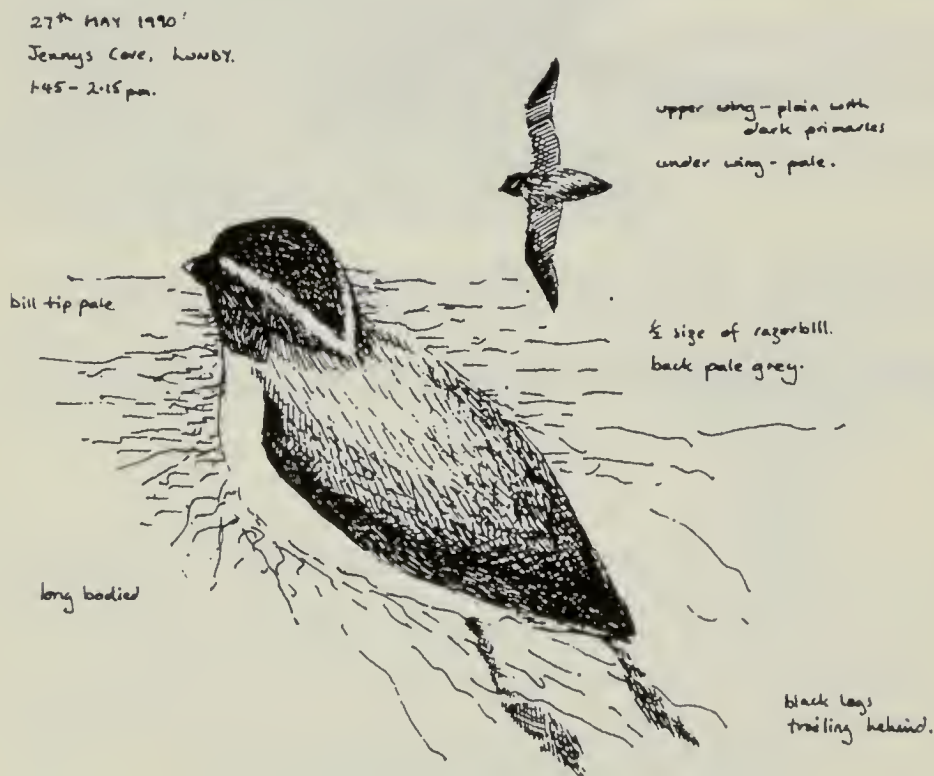 27th MAY 1990'
Jennys Cove, LUNDY.
1.45 - 2.15 pm.
upper wing - plain with
dark primaries
under wing - pale.
bill tip pale
½ size of razorbill.
back pale grey.
long bodied
black legs
trailing behind.